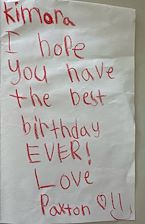 Kimora
I hope
you have
the best
birthday
EVER!
Love
Paxton ♡!!